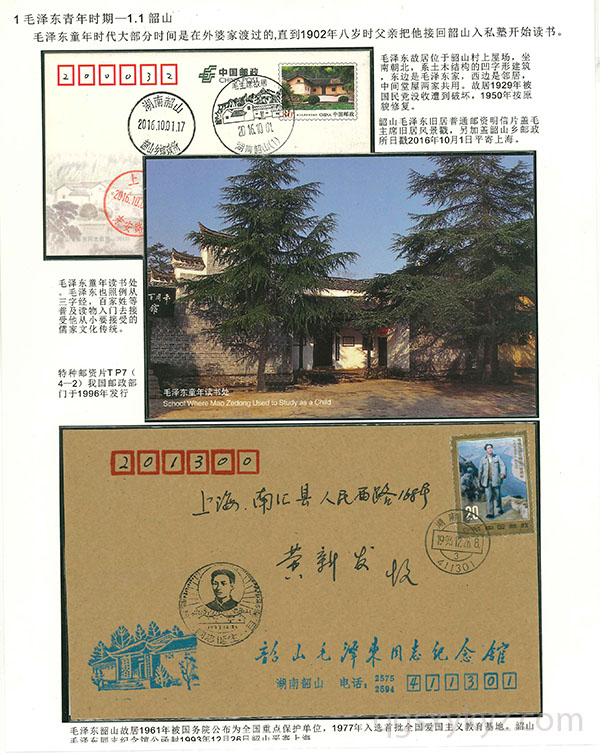 1毛泽东青年时期—1.1韶山
毛泽东童年时代大部分时间是在外婆家渡过的,直到1902年八岁时父亲把他接回韶山入私塾开始读书。
200032
中国邮政
CHINA
毛主席故居
80
中国邮政
湖南韶山
2016.10.01.17
2016.10.01
湖南韶山
毛泽东故居位于韶山村上屋场，坐
南朝北，系土木结构的凹字形建筑
，东边是毛泽东家，西边是邻居，
中间堂屋两家共用。故居1929年被
国民党没收遭到破坏，1950年按原
貌修复。
韶山毛泽东旧居普通邮资明信片盖毛
主席旧居风景戳，另加盖韶山乡邮政
所日戳2016年10月1日平寄上海。
毛泽东童年读书处
。毛泽东也照例从
三字经，百家姓等
普及读物入门去接
受他从小要接受的
儒家文化传统。
特种邮资片TP7（
4—2）我国邮政部
门于1996年发行
毛泽东童年读书处
School Where Mao Zedong Used to Study as a Child
201300
上海.南汇县人民西路168号
黄新发 收
20
中国邮政
湖南
3
411301
韶山毛泽东同志纪念馆
湖南韶山 电话：2575
2594
411301
毛泽东韶山故居1961年被国务院公布为全国重点保护单位，1977年入选首批全国爱国主义教育基地。韶山
毛泽东同志纪念馆公函封1993年12月26日韶山平寄上海